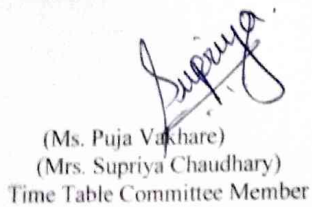 Supriya.
(Ms. Puja Vakhare)
(Mrs. Supriya Chaudhary)
Time Table Committee Member